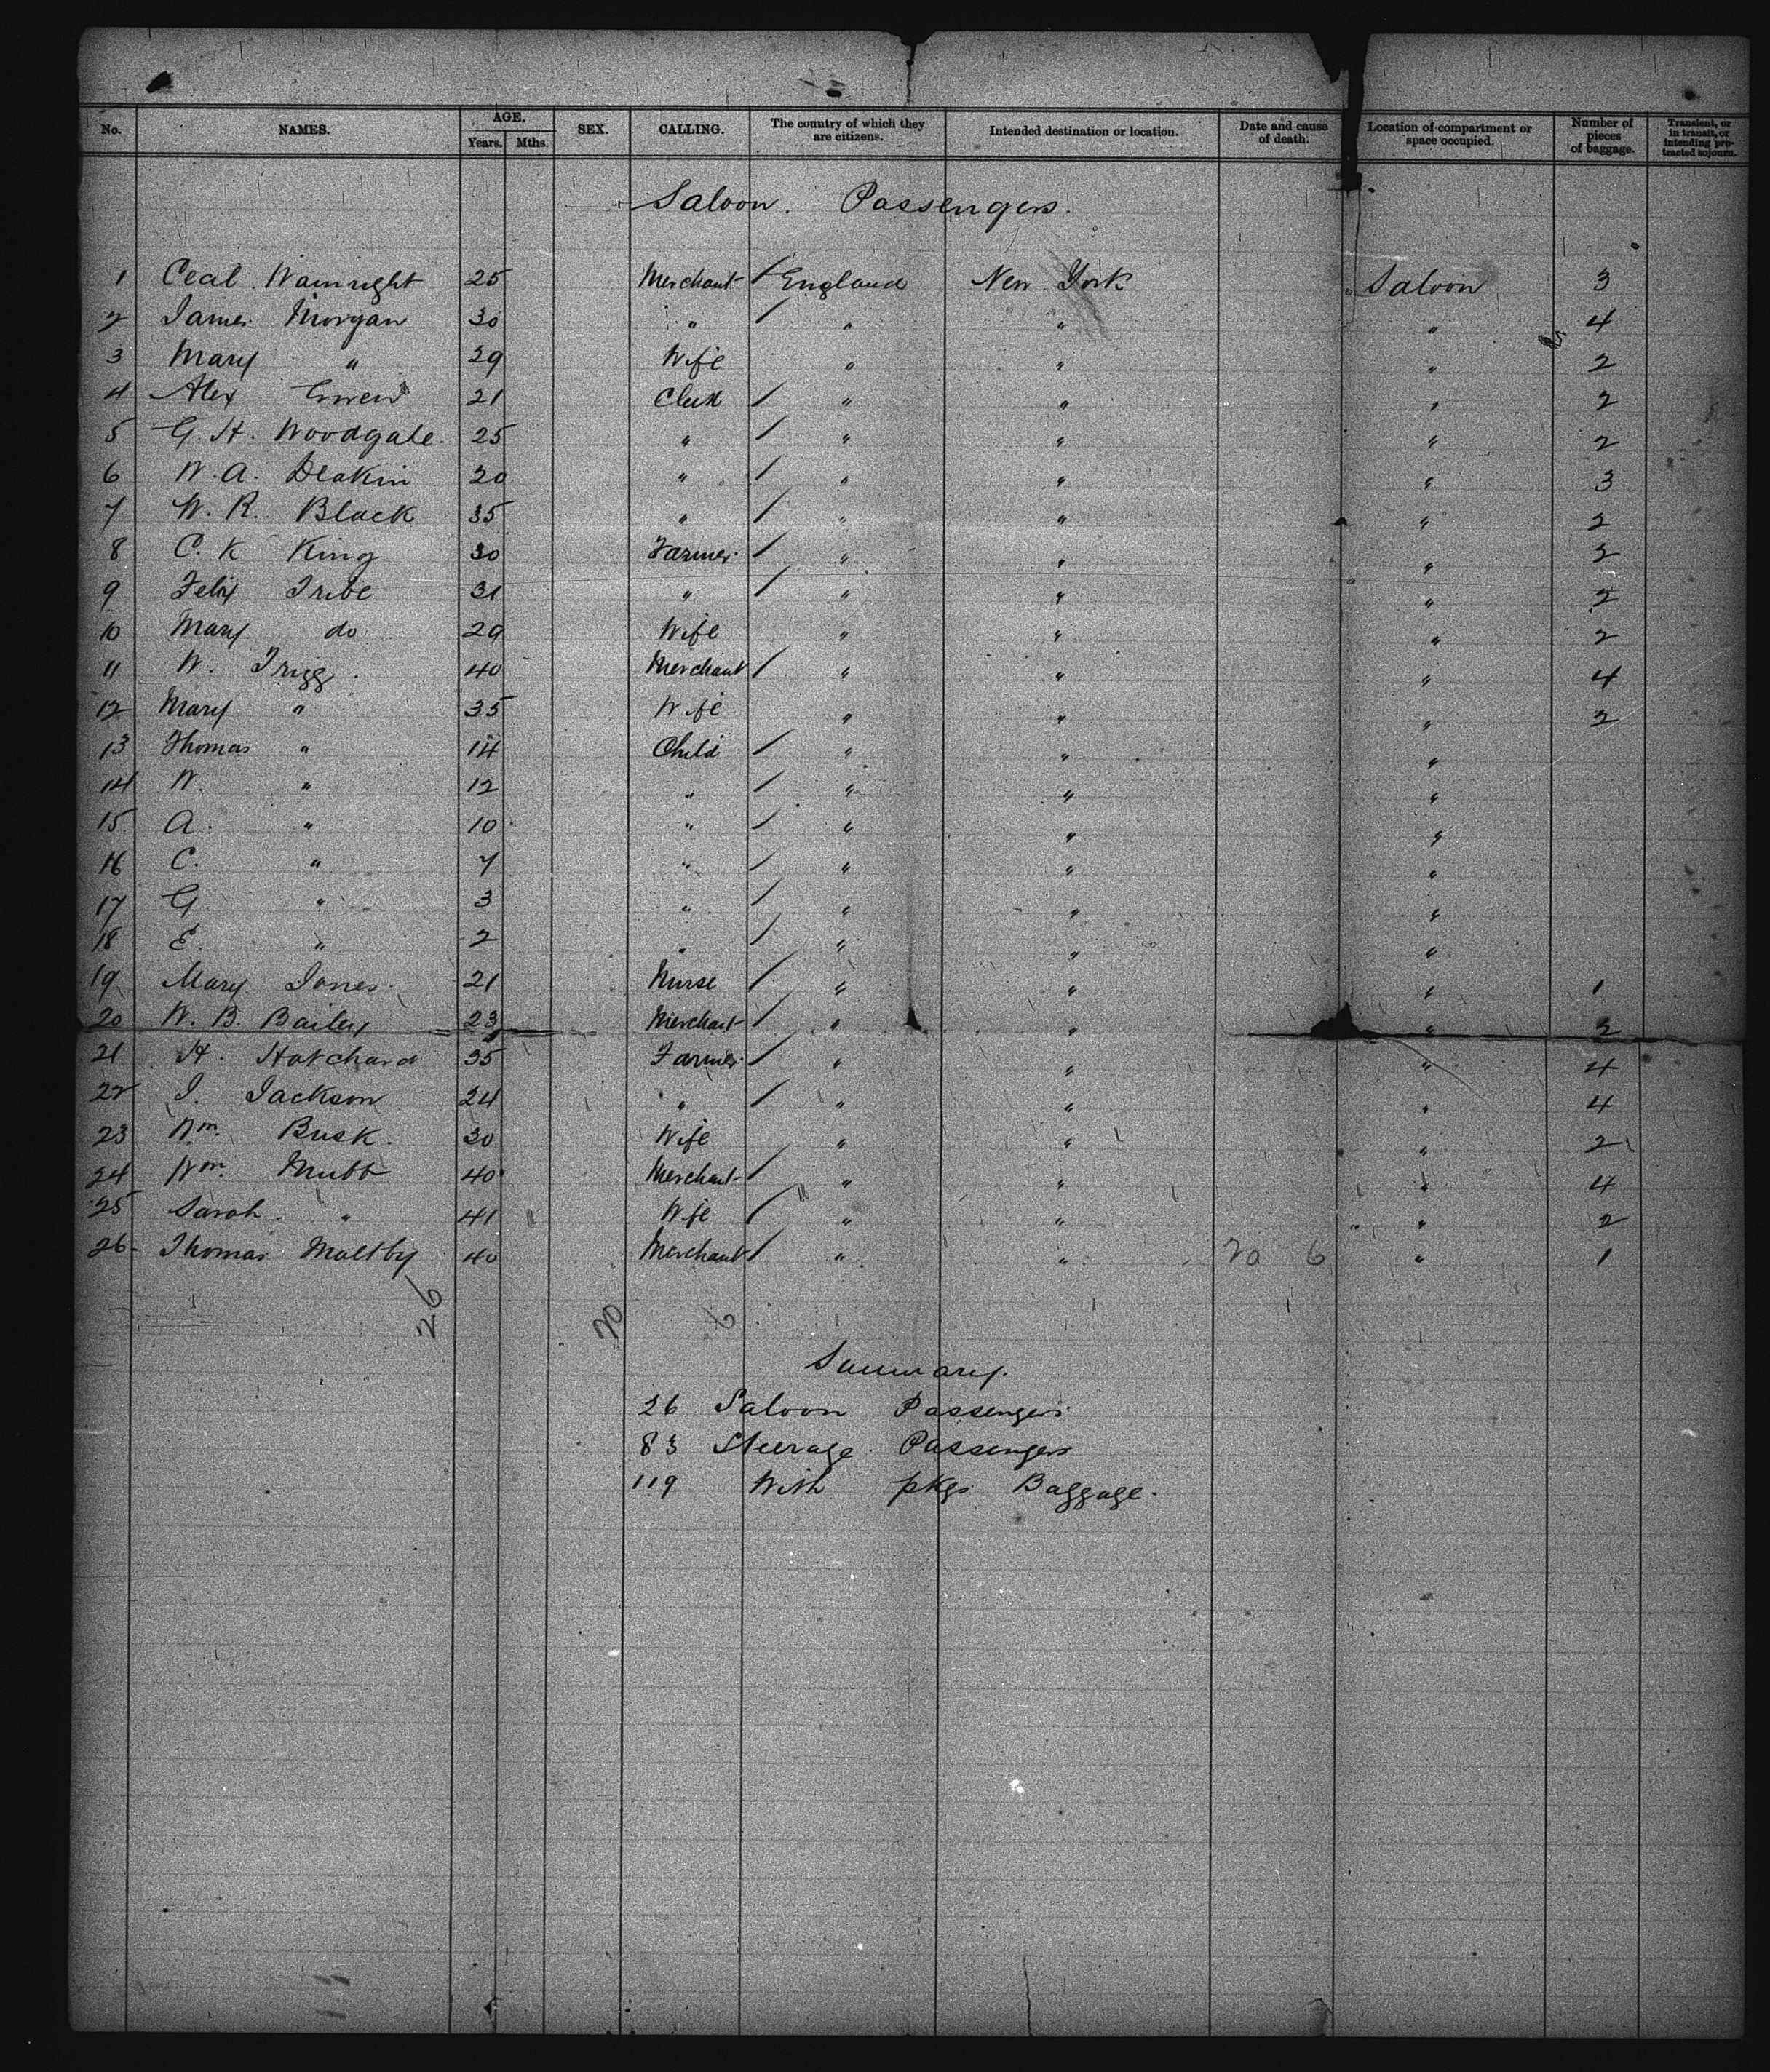 No. NAMES. AGE. Years. Mths. SEX. CALLING. The country of which they are citizens. Intended destination or location. Date and cause of death. Location of compartment or space occupied. Number of pieces of baggage. Transient, or in transit, or intending protracted sojourn.
Saloon. Passengers.
1 Ceal Wainright 25 Merchant England New York Saloon 3
2 James Morgan 30 " " " " 4
3 Mary " 29 Wife " " " 2
4 Alex 21 Clerk " " " 2
5 G. H. Woodgate. 25 " " " " 2
6 W. A. Deakin 20 " " " " 3
7 W. R. Black 35 " " " " 2
8 C. K King 30 Farmer " " " 2
9 Felix Tribe 31 " " " " 2
10 Mary do 29 Wife " " " 2
11 W. Trigg. 40 Merchant " " " 4
12 Mary " 35 Wife " " " 2
13 Thomas " 14 Child " " "
14 W. " 12 " " " "
15 A. " 10 " " " "
16 C. " 7 " " " "
17 G " 3 " " " "
18 E. " 2 " " " "
19 Mary Jones. 21 Nurse " " " 1
20 W. B. Bailey 23 Merchant " " " 2
21 H. Hatchard 35 Farmer " " " 4
22 J. Jackson 24 " " " " 4
23 Wm. Busk. 30 Wife " " " 2
24 Wm. Mubb 40 Merchant " " " 4
25 Sarah. " 41 Wife " " " 2
26 Thomas Maltby 40 Merchant " " 20 6 " 1
26 20 6
Summary.
26 Saloon Passengers
83 Steerage. Passengers
119 With pkgs Baggage.